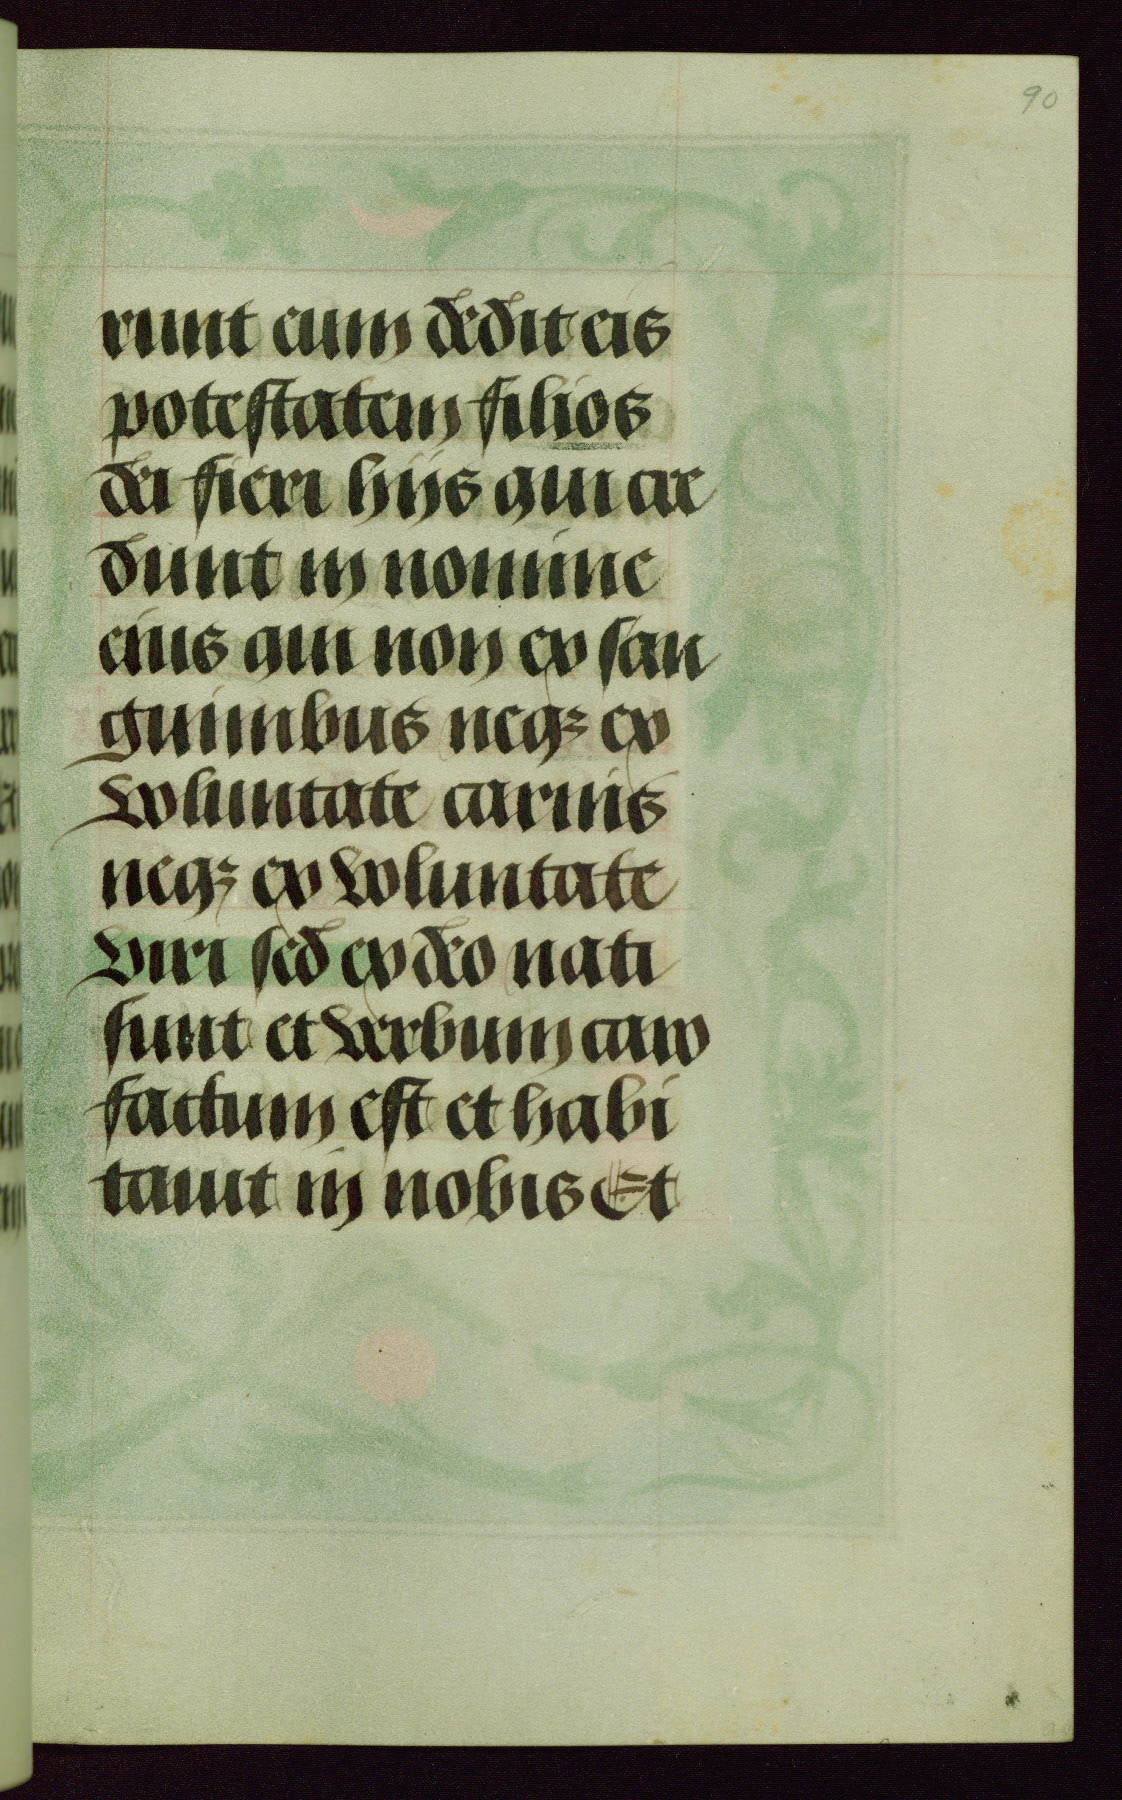 90
runt eum dedit eis
potestatem filios
dei fieri hijs qui cre
dunt in nomine
eius qui non ex san
guinibus neqꝫ ex
voluntate carnis
neqꝫ ex voluntate
viri sed ex deo nati
sunt et verbum caro
factum est et habi
tauit in nobis Et